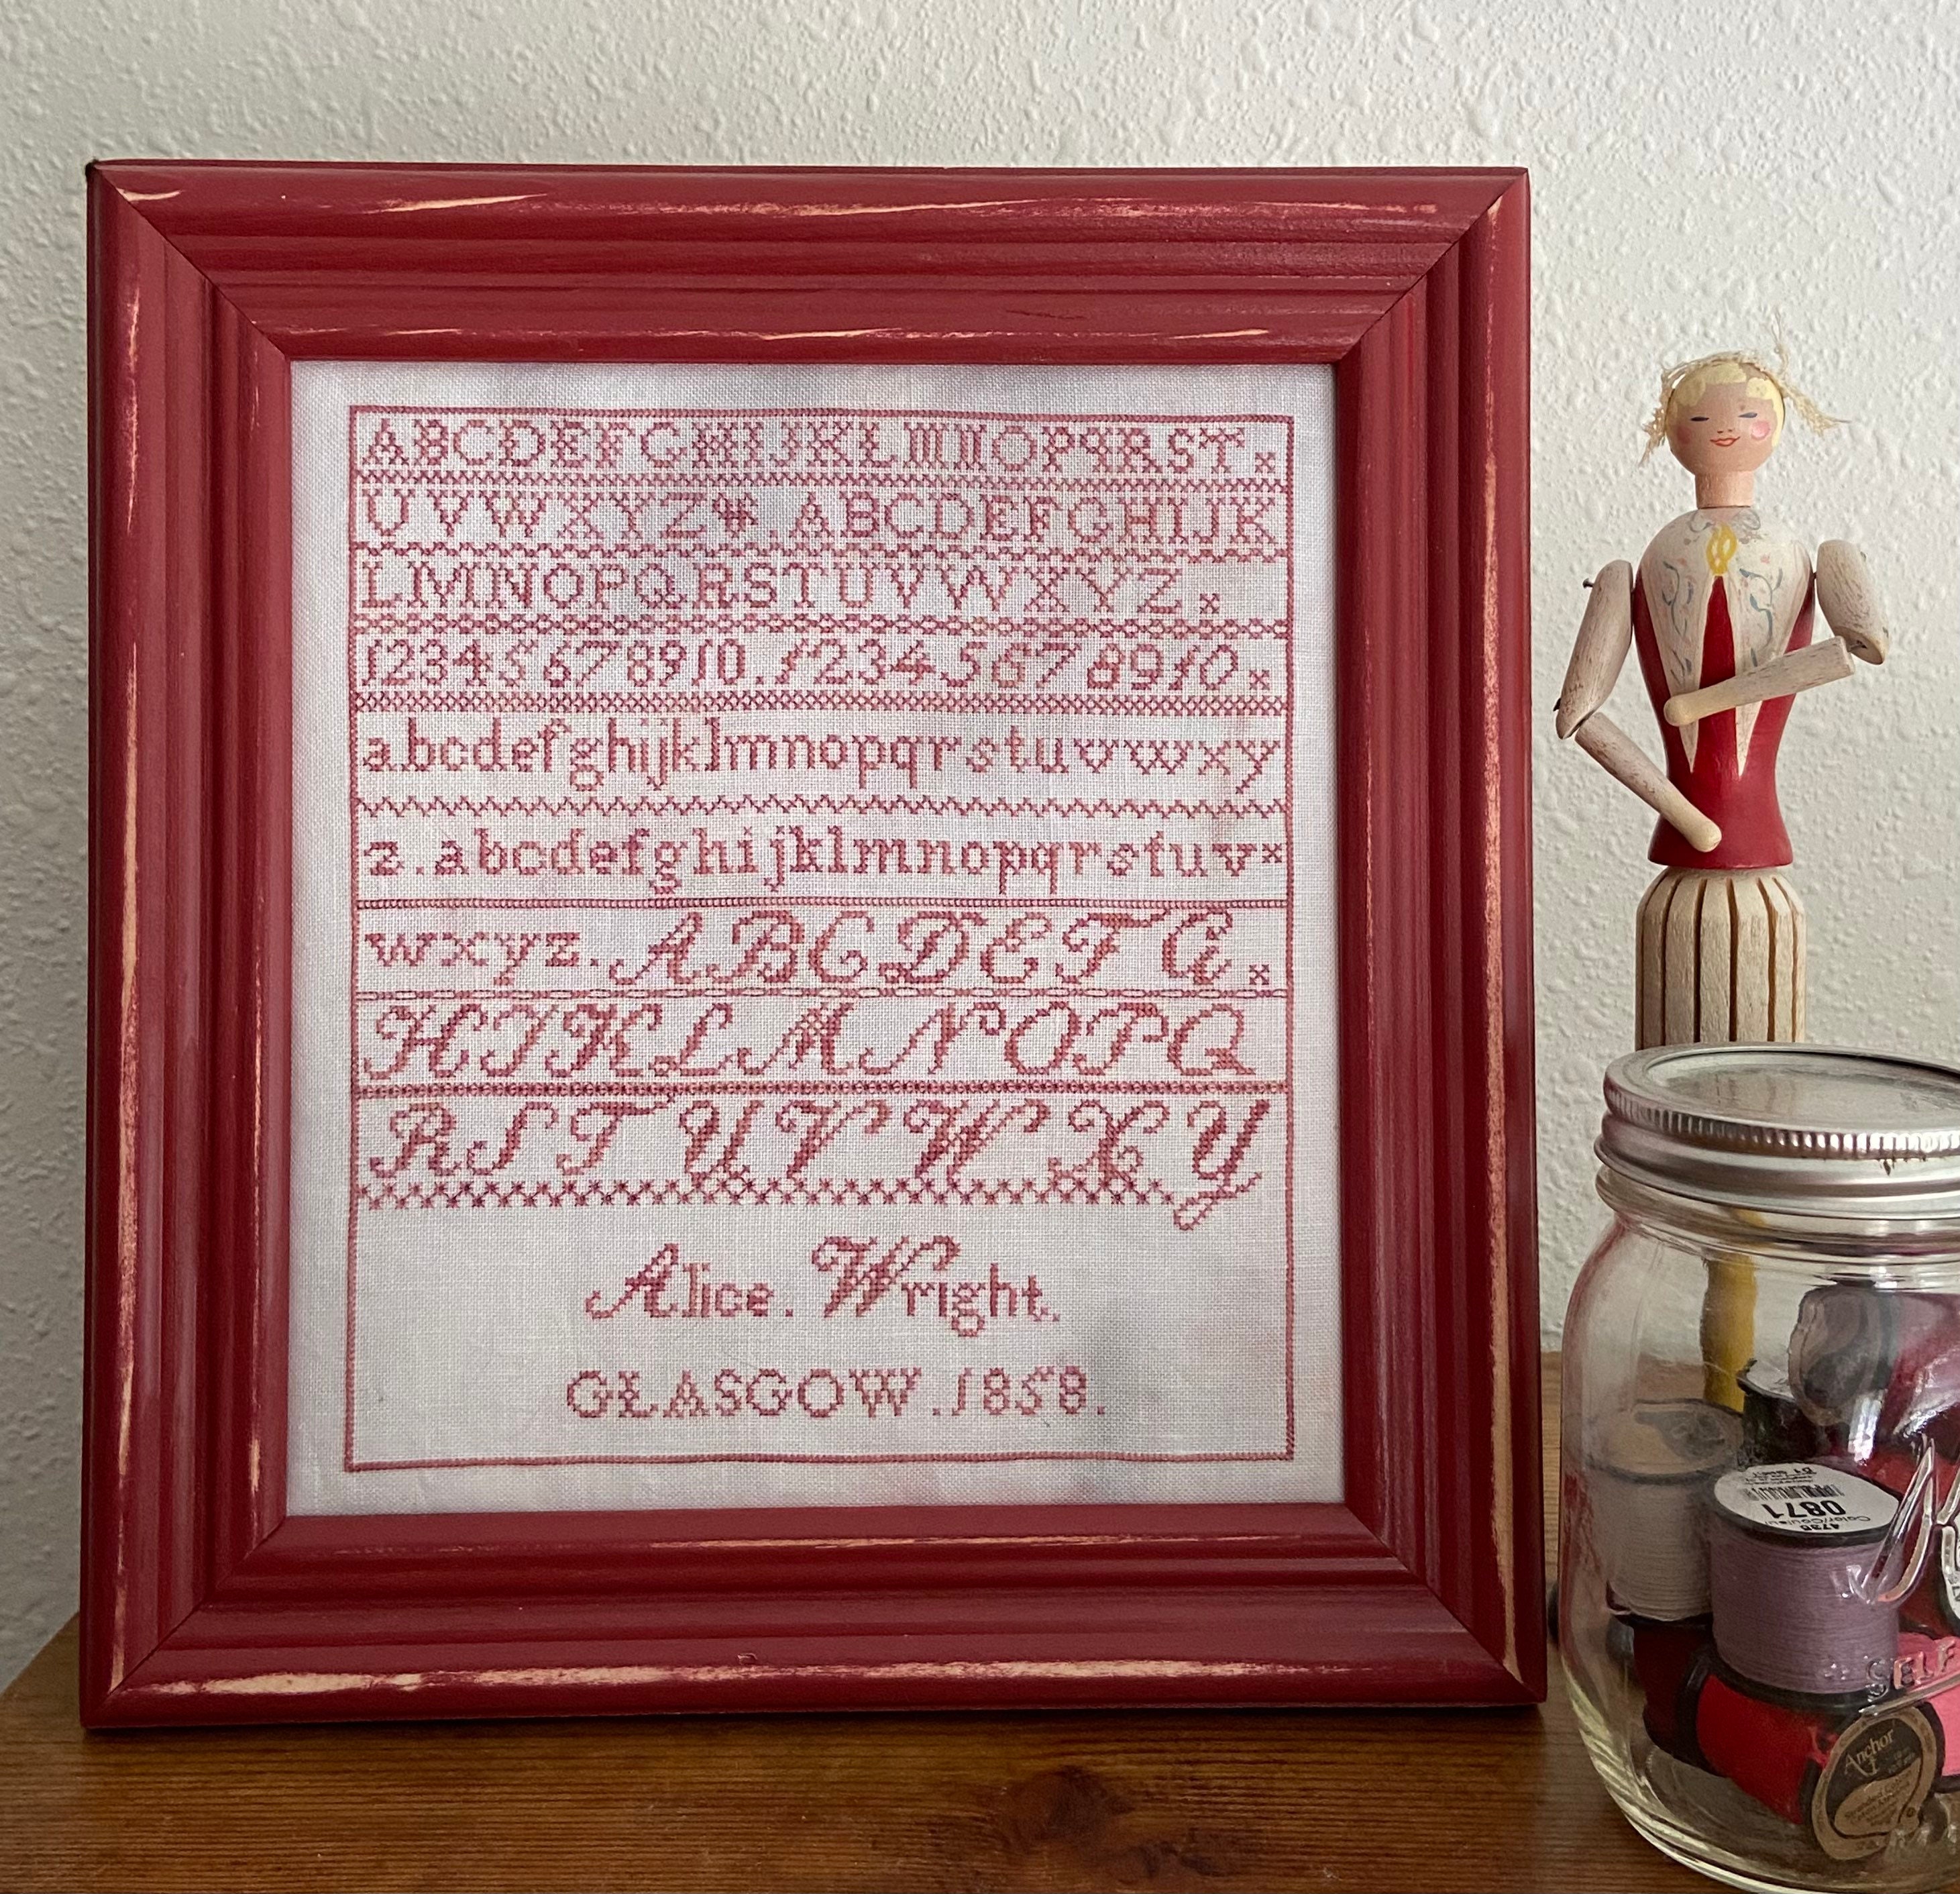 ABCDEFGHIJKLMNOPQRST
UVWXYZ&.ABCDEFGHIJK
LMNOPQRSTUVWXYZ.
12345678910.12345678910
abcdefghijklmnopqrstuvwxy
z.abcdefghijklmnopqrstuv
wxyz.ABCDEFG
HIKLMNOPQ
RSTUVWXY
Alice. Wright.
GLASGOW.1858.
Color/Couleur
0871
4735
SELF
Anchor